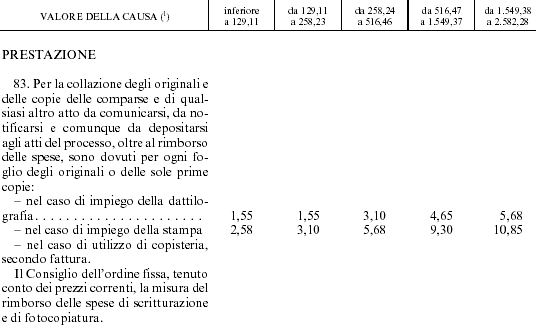 VALORE DELLA CAUSA (¹) inferiore a 129,11 da 129,11 a 258,23 da 258,24 a 516,46 da 516,47 a 1.549,37 da 1.549,38 a 2.582,28
PRESTAZIONE
83. Per la collazione degli originali e
delle copie delle comparse e di qual-
siasi altro atto da comunicarsi, da no-
tificarsi e comunque da depositarsi
agli atti del processo, oltre al rimborso
delle spese, sono dovuti per ogni fo-
glio degli originali o delle sole prime
copie:
– nel caso di impiego della dattilo-
grafia . . . . . . . . . . . . . . . . . . . . . . 1,55 1,55 3,10 4,65 5,68
– nel caso di impiego della stampa 2,58 3,10 5,68 9,30 10,85
– nel caso di utilizzo di copisteria,
secondo fattura.
Il Consiglio dell'ordine fissa, tenuto
conto dei prezzi correnti, la misura del
rimborso delle spese di scritturazione
e di fotocopiatura.